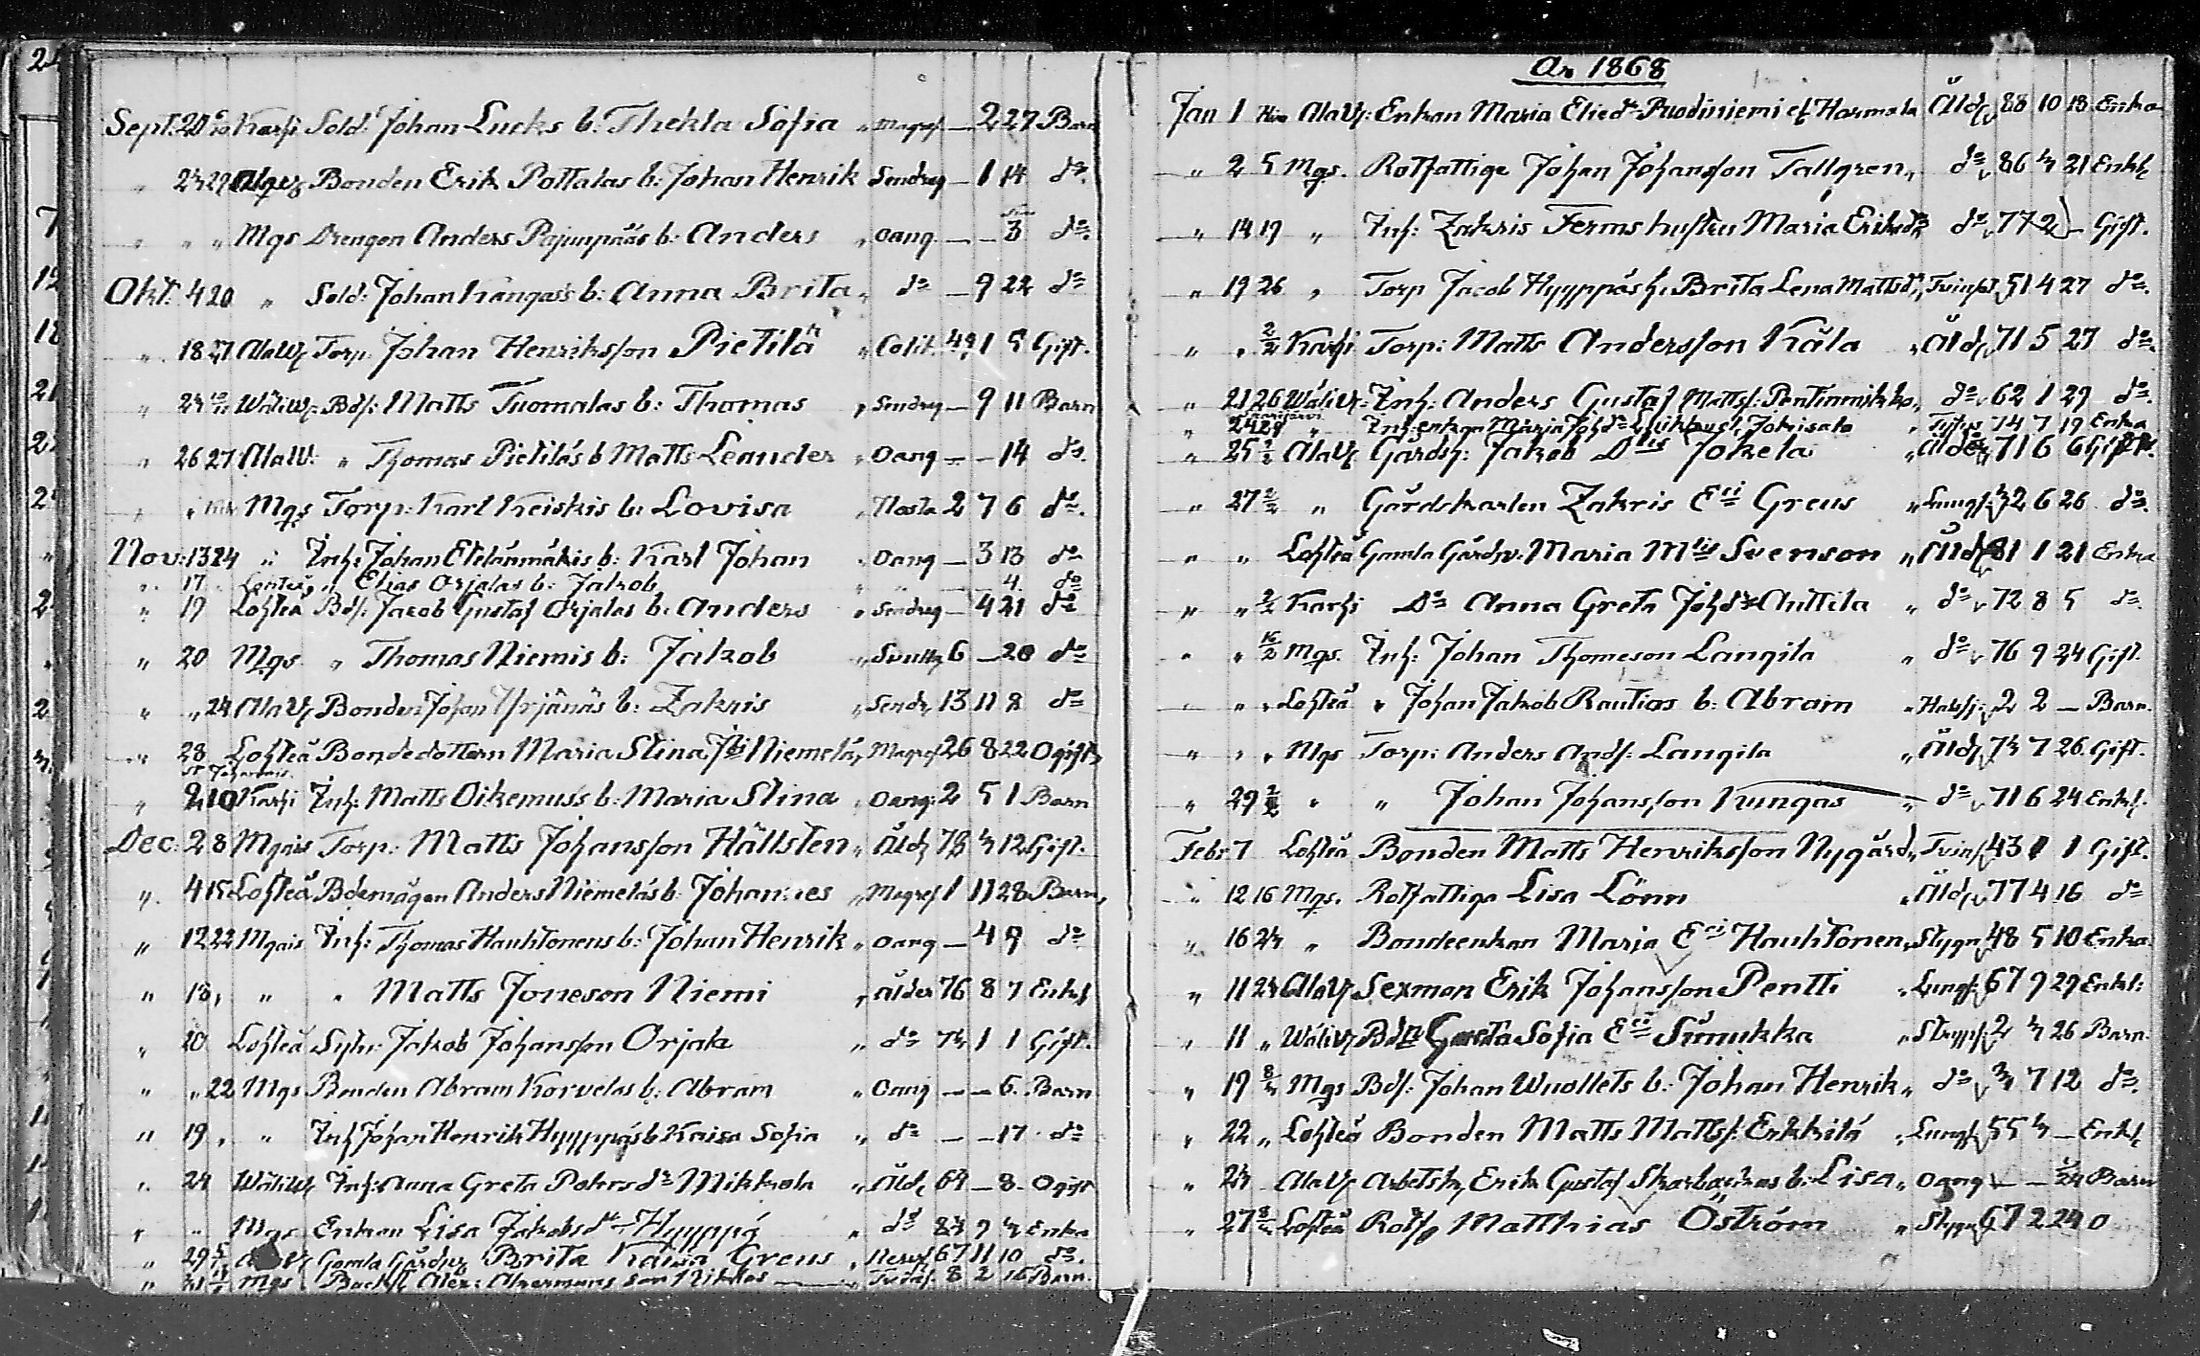 Sept. 20 Karhi Sold: Johan Lucks b: Thekla Sofia " Magref — 2 27 Barn
" 24 29 Bonden Erik Pottalas b: Johan Henrik Sendrag — 1 14 do
" " " Mgs Drengen Anders Pajunpääs b: Anders " oang. — — 3 do
Okt. 4 20 " Sold: Johan Kangass b: Anna Brita " do — 9 22 do
" 18 27 AlaW Torp: Johan Henriksson Pietilä " Colik 49 1 5 Gift.
" 24 WäliW Bds: Matts Tuomalas b: Thomas " Sendrag — 9 11 Barn
" 26 27 AlaW: " Thomas Pietiläs b Matts Leander " Oang — — 14 do
" " Mgs Torp: Karl Keiskis b: Lovisa " Hosta 2 7 6 do
Nov: 13 24 " Inh: Johan Etelänmäkis b: Karl Johan " Oang — 3 13 do
" 17 Lohteå " Elias Orjalas b: Jakob 4 do
" 19 Lohteå Bds: Jacob Gustaf Orjalas b: Anders " Sendrag — 4 21 do
" 20 Mgs " Thomas Niemis b: Jakob " 6 — 20 do
" " 24 AlaW Bonden Johan Yrjänäs b: Zakris " Sendr 13 11 8 do
" 28 Lohteå Bondedottern Maria Stina Niemelä " Magref 26 8 22 Ogift
" 2 10 Karhi Inh: Matts Oikemuss b: Maria Stina " Oang: 2 5 1 Barn
Dec: 2 8 Mgais Torp: Matts Johansson Hällsten " Åld 78 4 12 Gift.
" 4 15 Lohteå Bdemågen Anders Niemeläs b: Johannes " Magref 1 11 28 Barn
" 12 22 Mgais Inh: Thomas Hauhtonens b: Johan Henrik " Oang — 4 9 do
" 13 " " " Matts Joneson Niemi " Ålder 76 8 7 Enkl
" 10 Lohteå Sytn: Jakob Johansson Orjala " do 74 1 1 Gift.
" " 22 Mgs Bonden Abram Korvelas b: Abram " Oang — — 6 Barn
" 19 " " Inh Johan Henrik Hyyppäs b Kaisa Sofia " do — — 17 do
" 24 WäliW Inh: Anna Greta Petersdr Mikkola " Åld 64 — 8 Ogift
" " Mgs Enkan Lisa Jakobsdr Hyyppä " do 84 9 4 Enka
" 29 AlaW Gamla Gårdv Brita Kaisa Greus " 67 11 10 do
" 31 Mgs Alex: Akermans son Niklas — 8 2 16 Barn
År 1868
Jan 1 AlaW: Enkan Maria Eliedr Puodiniemi ell Harmala Åld 88 10 13 Enka
" 2 5 Mgs. Rotfattige Johan Johansson Tallgren " do 86 4 21 Enkl
" 14 19 " Inh: Zakris Ferms hustru Maria Eriksdr do 77 2 — Gift.
" 19 26 " Torp Jacob Hyyppäs h. Brita Lena Mattsdr Tvinsot 51 4 27 do
" " 2/2 Karhi Torp: Matts Andersson Käla " Åld 71 5 27 do
" 21 26 WäliW: Inh: Anders Gustaf Mattss: Pentinmikko " do 62 1 29 do
" 24 29 " Inh enkan Maria Johdr Jokisalo " Tyfus 74 7 19 Enka
" 25 AlaW Gårdsh: Jakob Dlis Jokela " Ålder 71 6 6 Gift.
" 27 2/2 " Gårdskarlen Zakris Eri Greus " Lungs 42 6 26 do
" " Lohteå Gamla Gårdv: Maria Mlis Svenson " Åld 81 1 21 Enka
" " 2/2 Karhi Do Anna Greta Johdr Anttila " do 72 8 5 do
" " 16/2 Mgs. Inh: Johan Thomeson Långila " do 76 9 24 Gift.
" " " Lohteå " Johan Jakob Rautios b: Abram " Halssj: 2 2 — Barn.
" " " Mgs Torp: Anders Ands: Langila " Åld 74 7 26 Gift.
" 29 " " Johan Johansson Kungas " do 71 6 24 Enkl.
Febr 7 Lohteå Bonden Matts Henriksson Nygård " Tvins 43 1 1 Gift.
" 12 16 Mgs. Rotfattiga Lisa Lönn " Åld 77 4 16 do
" 16 24 " Bondeenkan Maria Eri Hauhtonen " Stygn 48 5 10 Enka
" 11 24 AlaW Sexman Erik Johansson Pentti " Lungs 67 9 29 Enkl:
" 11 " WäliW Greta Sofia Eri Simukka " Stryps 2 4 26 Barn.
" 19 8/4 Mgs Bds: Johan Wuollets b: Johan Henrik " do 4 7 12 do
" 22 " Lohteå Bonden Matts Mattss: Erkkilä " Lungs 55 4 — Enkl
" 24 AlaW Arbetsk, Erik Gustaf Skarbackas b: Lisa " Oang — — Barn
" 27 Lohteå Rotf Matthias Öström " Stygn 67 2 24 O